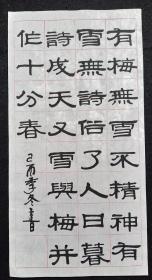 有梅無雪不精神有
雪無詩俗了人日暮
詩成天又雪與梅并
作十分春
酉季冬